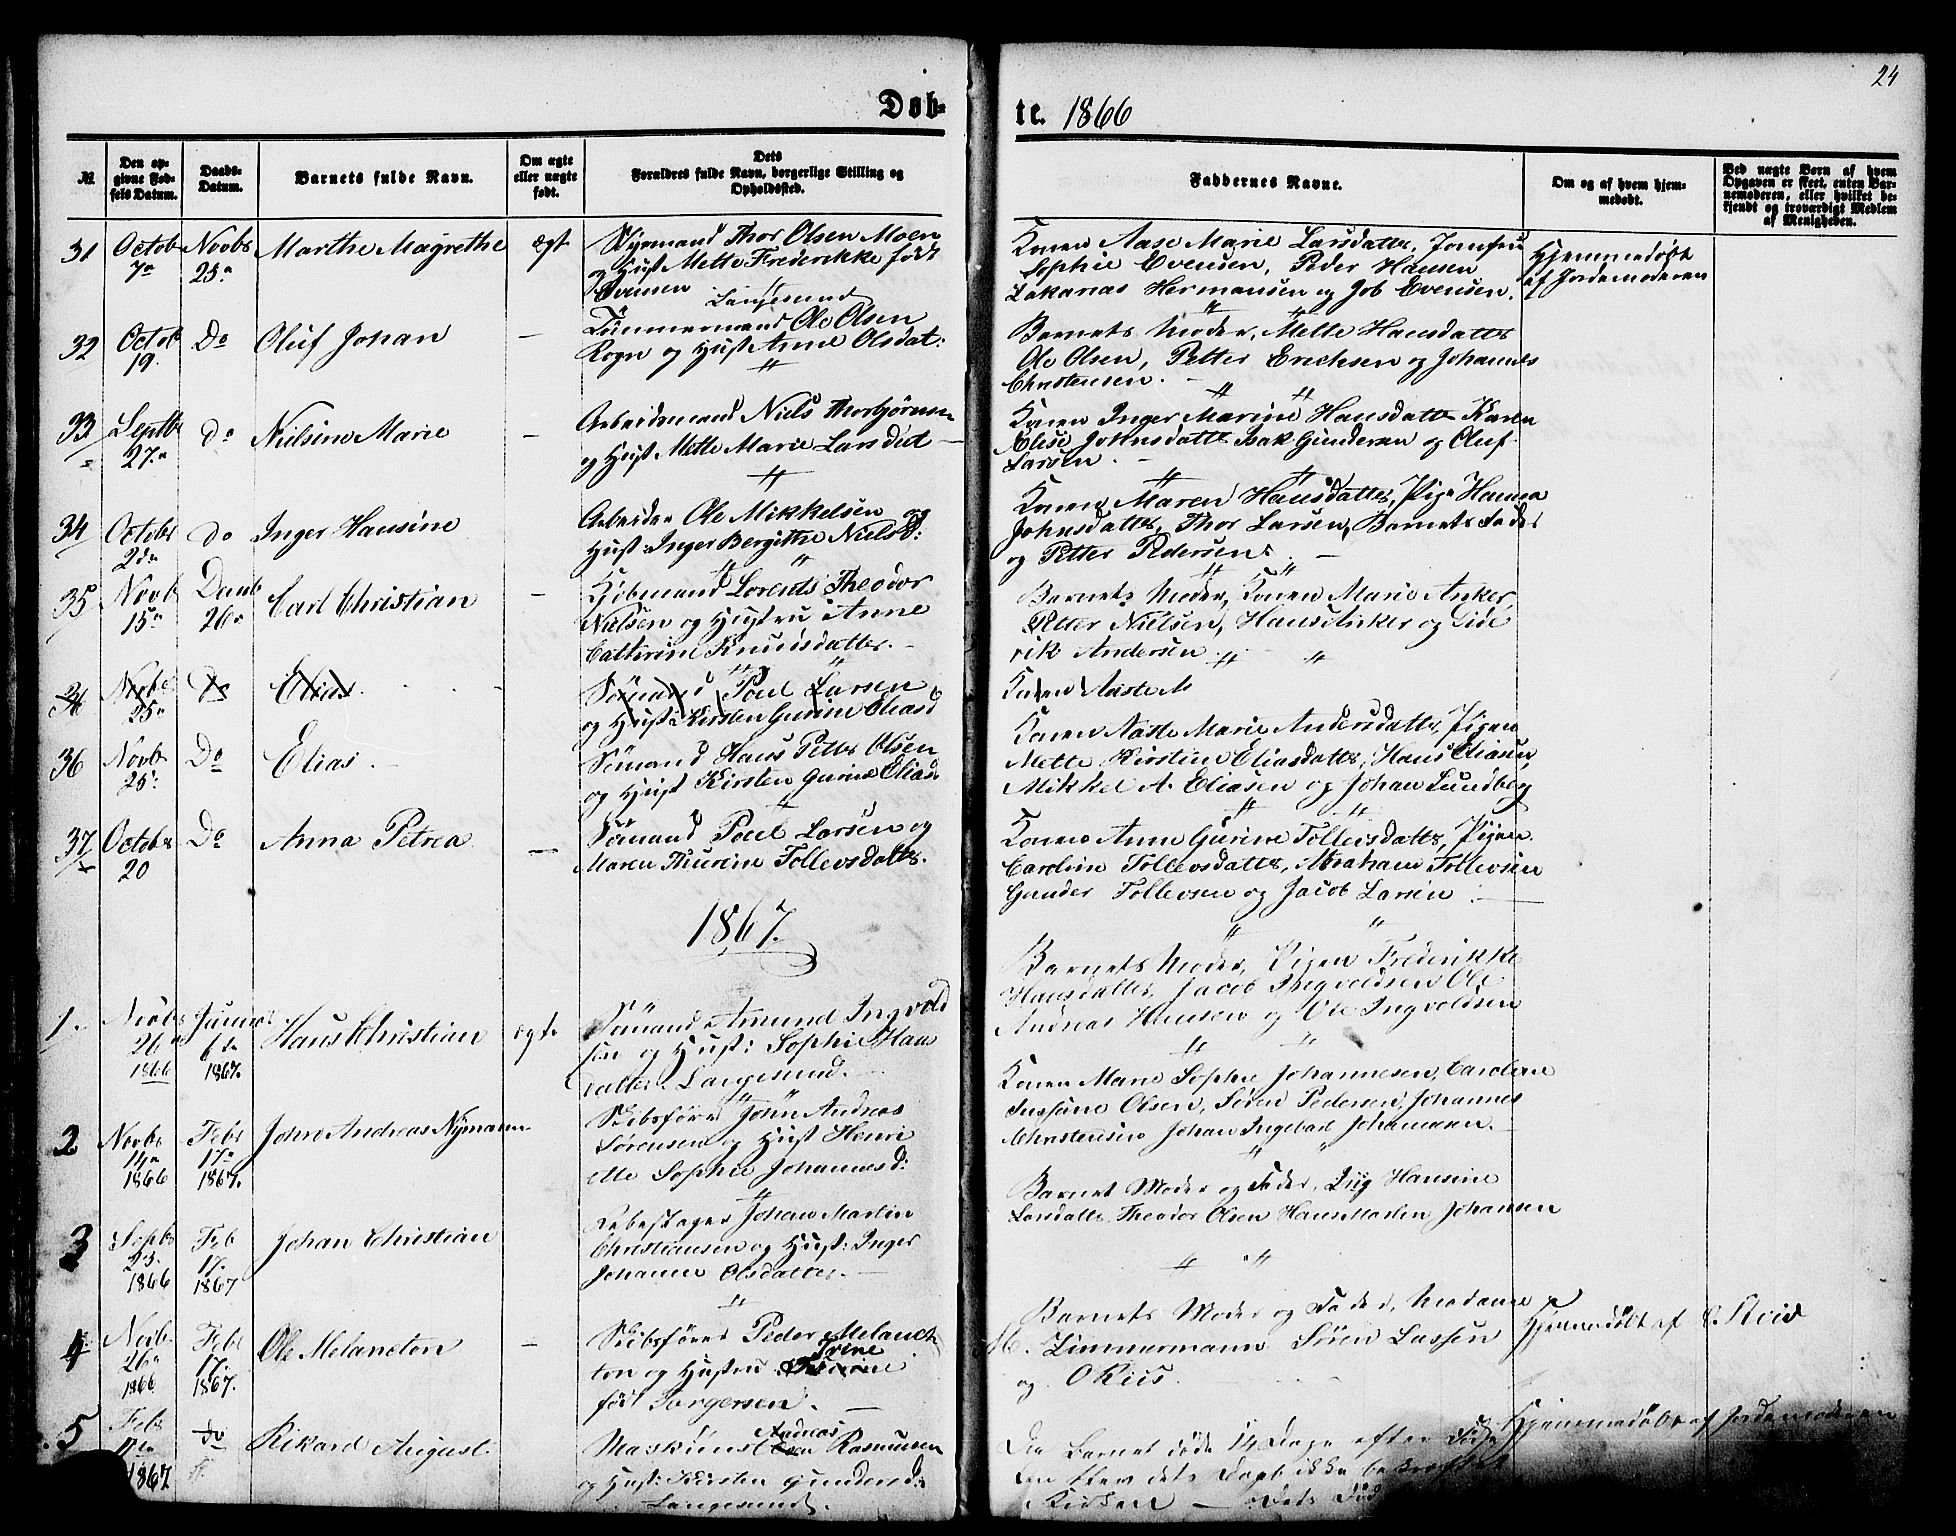 24
Døb-
te. 1866
№
Den op-
givne Fød-
sels Datum.
Daabs-
Datum.
Barnets fulde Navn.
Om ægte
eller uægte
født.
Dets
Forældres fulde Navn, borgerlige Stilling og
Opholdssted.
Faddernes Navne.
Om og af hvem hjem-
medøbt.
Ved uægte Børn af hvem
Opgaven er skeet, enten Bar-
nemoderen, eller hvilket be-
kjendt og troværdigt Medlem
af Menigheden.
31
Octob
7de
Novbr
25de
Marthe Magrethe
ægt
Styrmand Thor Olsen Moen
og Hust Mette Frederikke født
Evensen
Langesund
Konen Aase Marie Larsdatter, Jomfru
Sophie Evensen, Peder Hansen
Zakarias Hermansen og Job Evensen.
Hjemmedøbt
af Jordemoderen
32
Octob
19.
Do
Oluf Johan
—
Tømmermand Ole Olsen
Rogn og Hust Anne Olsdat:
Barnets Moder, Mette Hansdatter
Ole Olsen, Petter Erichsen og Johannes
Christensen.
33
Septbr
27de
do
Nielsine Marie
—
Arbeidsmand Niels Thorbjørnsen
og Hust. Mette Marie Larsdat —
Konen Inger Marine Hansdatter Karen
Elise Johnsdatter Isak Gundersen og Oluf
Larsen. —
34
Octobr
2de
do
Inger Hansine
Arbeider Ole Mikkelsen og
Hust: Inger Bergithe Nielsd:
Konen Maren Hansdatter, Pige Hanna
Johnsdatter, Thor Larsen, Barnets Fader
og Petter Pedersen. —
35
Novb
15de
Decmb
26de
Carl Christian
—
Kjøbmand Lorents Theodor
Nielsen og Hustru Anne
Catherine Knudsdatter. —
Barnets Moder, Konen Marie Anker,
Petter Nielsen, Hans Anker og Die
rik Andersen
36
Novbr
25de
Do
Elias
Sømand Poul Larsen
og Hust: Kirsten Gurine Eliasd
Konen Aaste M
36
Novb
25:
Do
Elias.
—
Sømand Hans Petter Olsen
og Hust Kirsten Gurine Eliasd
Konen Aaste Marie Andersdatter, Pigen
Mette Kirstine Eliasdatter, Hans Eliasen,
Mikkel A. Eliasen og Johan Lundberg
37
Octobr
20
Do
Anna Petrea
—
Sømand Poul Larsen og
Maren Thurine Tollevsdatter.
Konen Anne Gurine Tollevsdatter, Pigen
Caroline Tollevsdatter, Abraham Tollevsen
Gunder Tollevsen og Jacob Larsen.
1867.
1.
Novbr
26de
1866
Januar
6te
1867.
Hans Christian
ægte
Sømand Amund Ingvold
sen og Hust: Sophie Hans
datter. Langesund.
Barnets Moder, Pigen Frederikke
Hansdatter, Jacob Ingvoldsen Ole
Andreas Hansen og Ole Ingvoldsen
2
Novbr
14de
1866
Febr
17de
1867.
John Andreas Nymann
Skibsfører John Andreas
Sørensen og Hust Henri
ette Sophie Johannesd:
Konen Marie Sophie Johannesen, Caroline
Olsen, Søren Pedersen, Johannes
Christensen Johan Johannesen.
3
Sepbr
23.
1866
Feb
17.
1867
Johan Christian
Rebslager Johan Martin
Christiansen og Hust: Inger
Johanne Olsdatter.
Barnet Moder og Fader, Pige Hansine
Larsdatter, Theodor Olsen Hans Martin Johansen
4
Novb.
26de
1866
Febr
17.
1867.
Ole Melancton
—
Skibsfører Peder Melanch
ton og Hustru Trine
født Torgersen. —
Barnets Moder og Fader, Madame
M. Zimmermann Søren Lassen
og O Riis.
Hjemmedøbt af
5
Feb
1867
do
Rikard August.
Maskinist Andreas Rasmusen
og Hust: Kirsten Gundersd:
Langesund.
Da Barnet døde 14 Dage efter Føds
len blev dets Daab ikke bekræftet i
Kirken — Dets Død
Hjemmedøbt af Jordemoderen